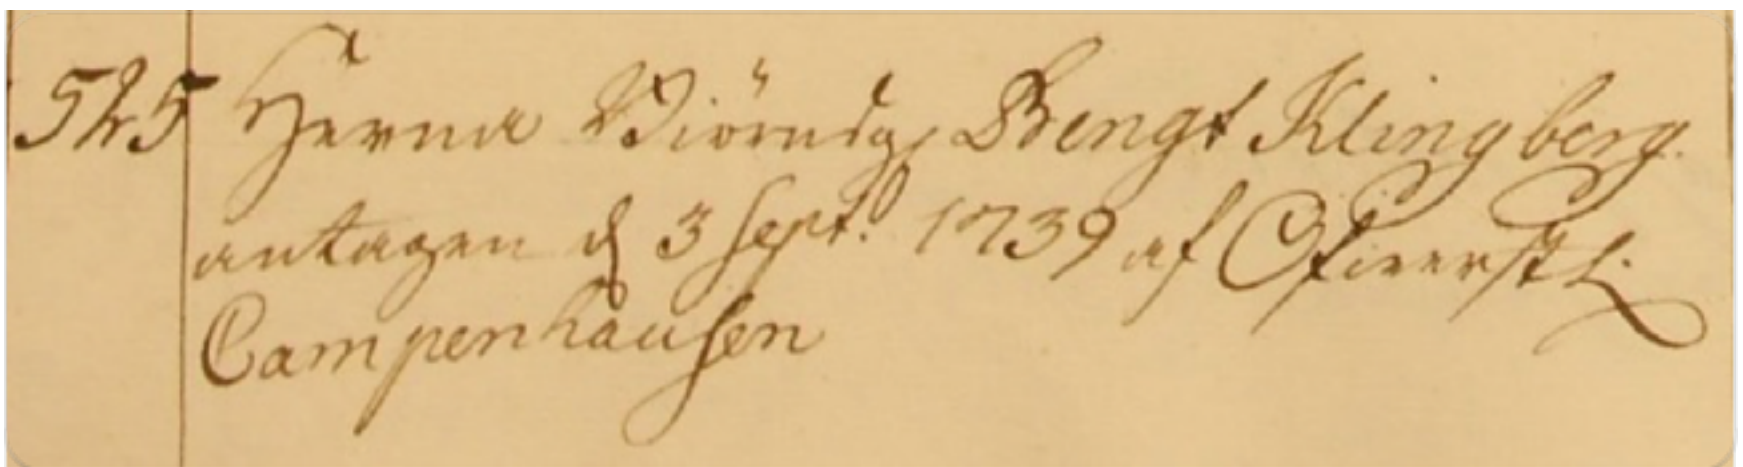 525 Herna Biörndg, Bengt Klingberg.
antagen d 3 Sept. 1739 af Öfwerst L.
Campenhausen